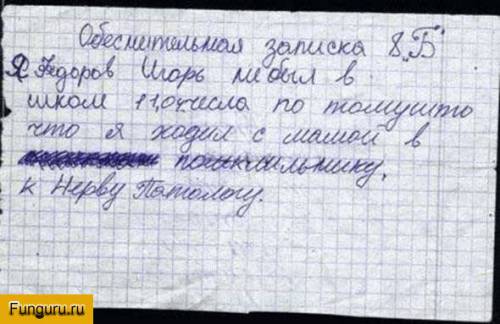 Обеснительная записка 8 „Б"
Я Федоров Игорь небыл в
школ 11,04 числа по томушто
что я ходил с мамой в
к Нерву Патологу.
Funguru.ru